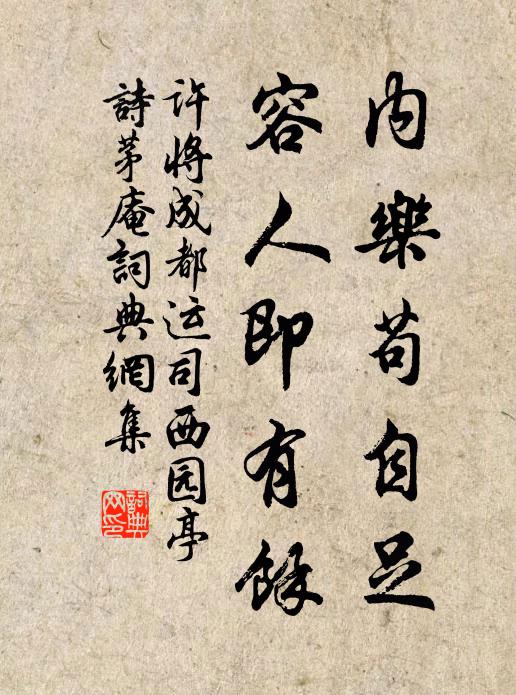 内樂苟自足
容人即有餘
许将成都运司西园亭
詩茅庵詞典網集
詞典网印